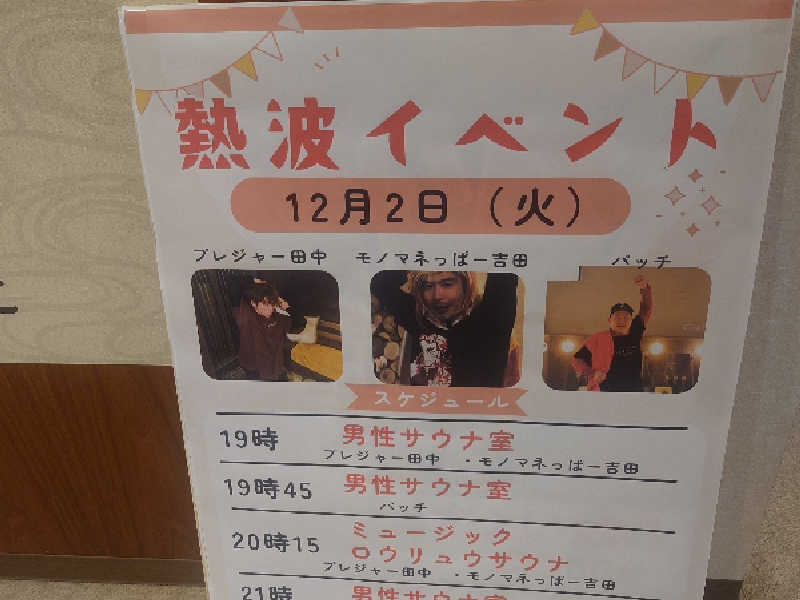 熱波イベント
12月2日（火）
プレジャー田中 モノマネっぱー吉田 パッチ
スケジュール
19時 男性サウナ室
プレジャー田中 ・モノマネっぱー吉田
19時45 男性サウナ室
パッチ
20時15 ミュージック
ロウリュウサウナ
プレジャー田中 ・モノマネっぱー吉田
21時 男性サウナ室